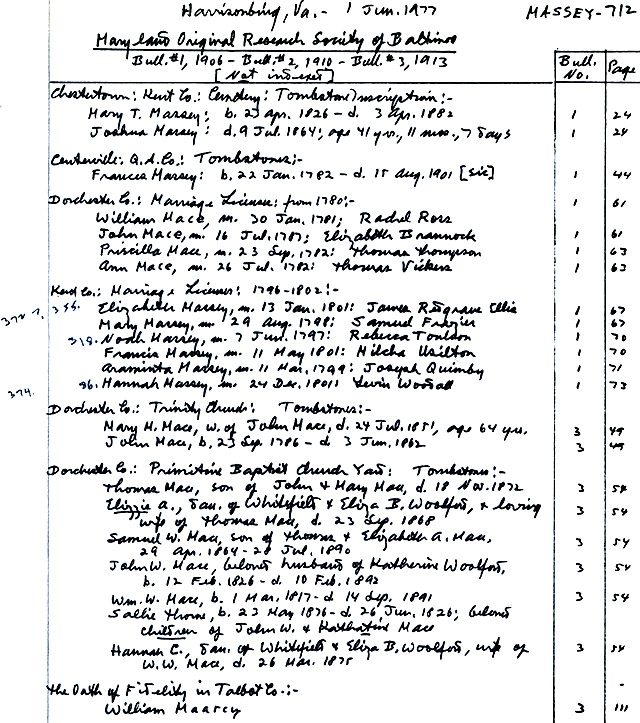 Harrisonburg, Va. - 1 Jun. 1977 MASSEY-712
Maryland Original Research Society of Baltimore
Bull. #1, 1906 - Bull. #2, 1910 - Bull. #3, 1913
[Not indexed]
Bull. No. Page
Chestertown: Kent Co.: Cemetery: Tombstone Inscription:-
Mary T. Massey: b. 23 Apr. 1826 - d. 3 Apr. 1882 1 24
Joshua Massey: d. 9 Jul. 1864; age 41 yrs., 11 mos., 7 days 1 24
Centerville: Q.A. Co.: Tombstones:-
Frances Massey: b. 22 Jan. 1782 - d. 15 Aug. 1901 [sic] 1 44
Dorchester Co.: Marriage Licenses: from 1780:-
William Mace, m. 30 Jan. 1781; Rachel Ross 1 61
John Mace, m. 16 Jul. 1787; Elizabeth Brannock 1 61
Priscilla Mace, m. 23 Sep. 1782: Thomas Thompson 1 63
Ann Mace, m. 26 Jul. 1782: Thomas Vickers 1 63
Kent Co.: Marriage Licenses: 1796-1802:-
Elizabeth Massey, m. 13 Jan. 1801: James Redgrave Ellis 1 67
Mary Massey, m. 29 Aug. 1798: Samuel Frazier 1 67
318. Noah Massey, m. 7 Jun. 1797: Rebecca Tomlson 1 70
Francis Massey, m. 11 May 1801: Milcha Usilton 1 70
Araminta Massey, m. 11 Mar. 1799: Joseph Quimby 1 71
374. 86. Hannah Massey, m. 24 Dec. 1801: Levin Woodall 1 73
Dorchester Co.: Trinity Church: Tombstones:-
Mary H. Mace, w. of John Mace, d. 24 Jul. 1851, age 64 yrs. 3 49
John Mace, b. 23 Sep. 1786 - d. 3 Jun. 1862 3 49
Dorchester Co.: Primitive Baptist Church Yard: Tombstones:-
Thomas Mace, son of John & Mary Mace, d. 18 Nov. 1872 3 54
Elizzie A., dau. of Whitefield & Eliza B. Woolford, & loving 3 54
wife of Thomas Mace, d. 23 Sep. 1868
Samuel W. Mace, son of Thomas & Elizabeth A. Mace, 3 54
29 Apr. 1864 - 28 Jul. 1890
John W. Mace, beloved husband of Katherine Woolford, 3 54
b. 12 Feb. 1826 - d. 10 Feb. 1892
Wm. W. Mace, b. 1 Mar. 1817 - d. 14 Sep. 1891 3 54
Sallie Thorne, b. 23 May 1876 - d. 26 Jun. 1826; beloved
children of John W. & Kathatine Mace
Hannah C., dau. of Whitefield & Eliza B. Woolford, wife of 3 54
W. W. Mace, d. 26 Mar. 1875
The Oath of Fidelity in Talbot Co.:- -
William Maarcy 3 111